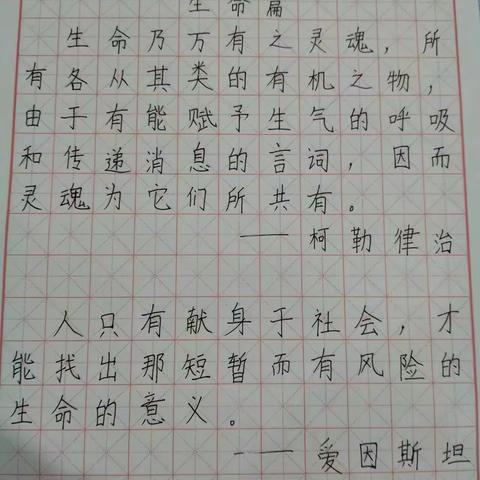 生命篇
生命乃万有之灵魂，所
有各从其类的有机之物，
由于有能赋予生气的呼吸
和传递消息的言词，因而
灵魂为它们所共有。
——柯勒律治
人只有献身于社会，才
能找出那短暂而有风险的
生命的意义。
——爱因斯坦